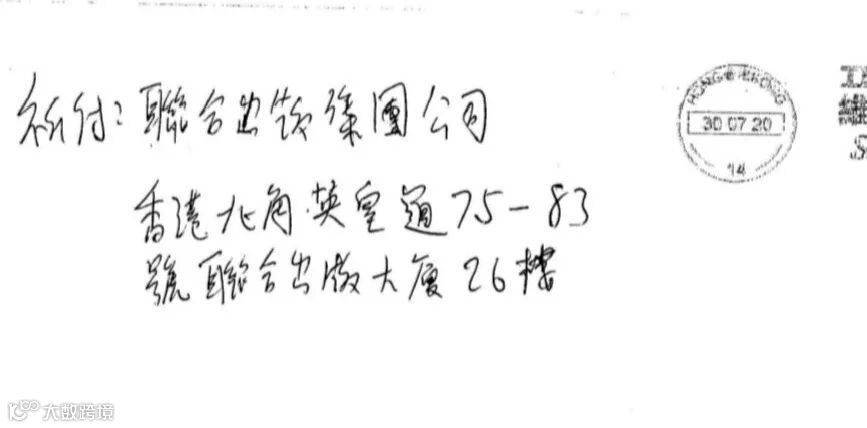 祈付：聯合出版集團公司
香港北角英皇道75-83
號聯合出版大厦26樓
HONG KONG
30 07 20
14
大数跨境